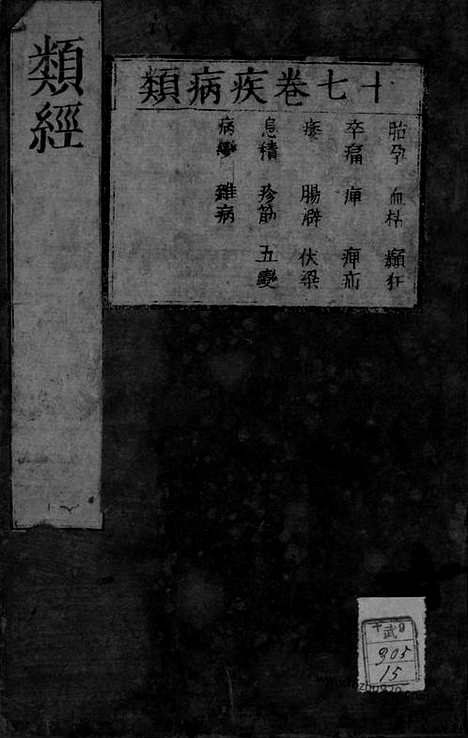 類經
十七卷疾病類
胎孕 血枯 癲狂
卒痛 痺 癉疝
痿 腸澼 伏梁
息積 疹筋 五變
病變 雜病
武
905
15